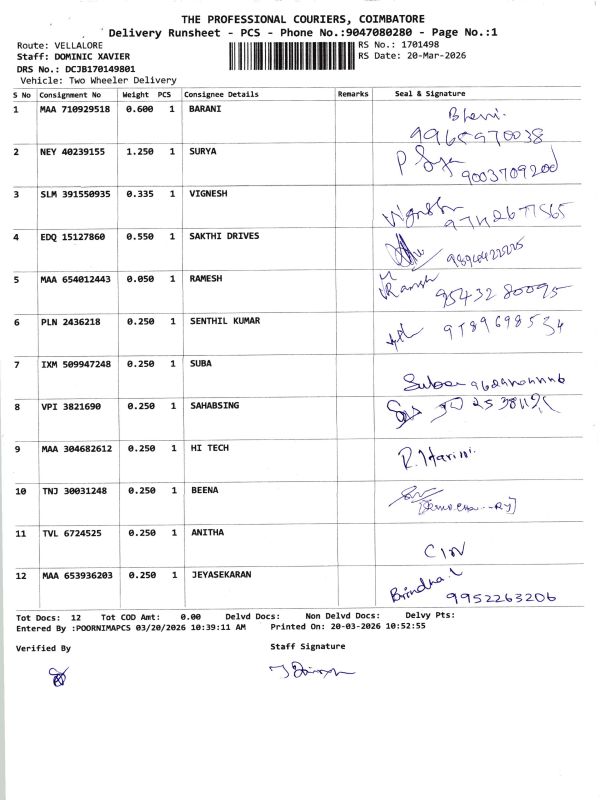 THE PROFESSIONAL COURIERS, COIMBATORE
Delivery Runsheet - PCS - Phone No.:9047080280 - Page No.:1
Route: VELLALORE RS No.: 1701498
Staff: DOMINIC XAVIER RS Date: 20-Mar-2026
DRS No.: DCJB170149801
Vehicle: Two Wheeler Delivery
S No Consignment No Weight PCS Consignee Details Remarks Seal & Signature
1 MAA 710929518 0.600 1 BARANI
2 NEY 40239155 1.250 1 SURYA
3 SLM 391550935 0.335 1 VIGNESH
Vignesh
4 EDQ 15127860 0.550 1 SAKTHI DRIVES
5 MAA 654012443 0.050 1 RAMESH
Ramesh
9543280095
6 PLN 2436218 0.250 1 SENTHIL KUMAR
9789698534
7 IXM 509947248 0.250 1 SUBA
Suba
8 VPI 3821690 0.250 1 SAHABSING
9 MAA 304682612 0.250 1 HI TECH
R. Harini.
10 TNJ 30031248 0.250 1 BEENA
11 TVL 6724525 0.250 1 ANITHA
12 MAA 653936203 0.250 1 JEYASEKARAN
Brindha.L
9952263206
Tot Docs: 12 Tot COD Amt: 0.00 Delvd Docs: Non Delvd Docs: Delvy Pts:
Entered By :POORNIMAPCS 03/20/2026 10:39:11 AM Printed On: 20-03-2026 10:52:55
Verified By Staff Signature